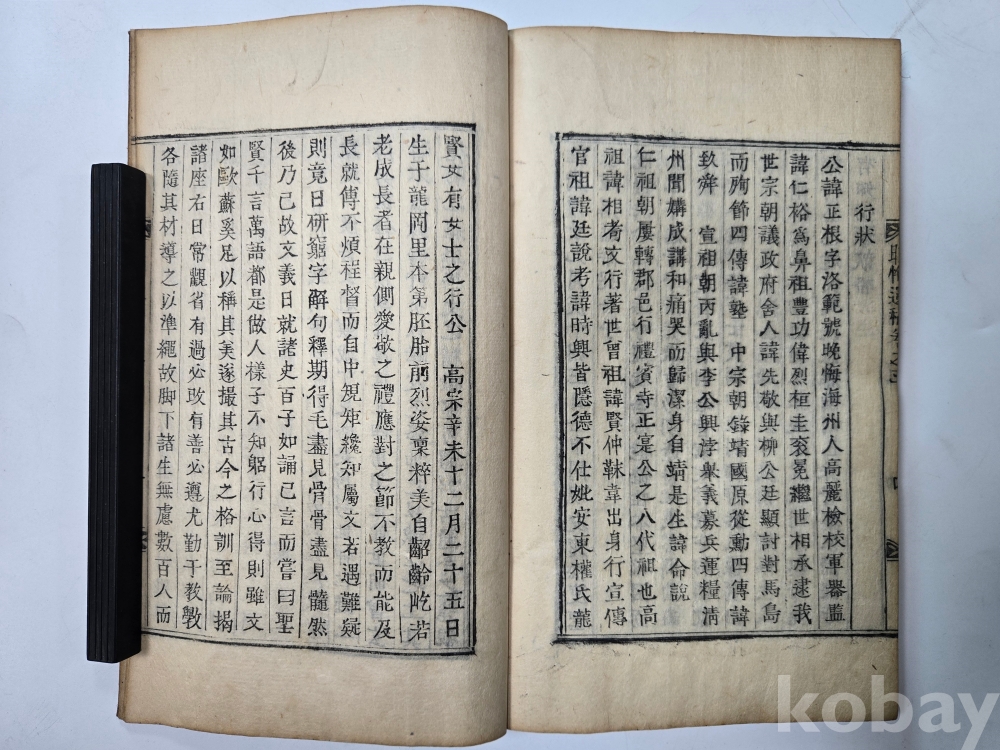 行狀
公諱正根字洛範號晚悔海州人高麗檢校軍器監
諱仁裕爲鼻祖豐功偉烈桓圭衮冕繼世相承逮我
世宗朝議政府舍人諱先敬與柳公廷顯討對馬島
而殉節四傳諱塾 中宗朝錄靖國原從勳四傳諱
致舜 宣祖朝丙亂與李公興浡擧義募兵運糧淸
州聞媾成講和痛哭而歸潔身自靖是生諱命說
仁祖朝屢轉郡邑行禮賓寺正寔公之八代祖也高
祖諱相耈文行著世曾祖諱賢仲韎韋出身行宣傳
官祖諱廷說考諱時興皆隱德不仕妣安東權氏龍
賢女有女士之行公 高宗辛未十二月二十五日
生于龍岡里本第胚胎前烈姿稟粹美自齠齡屹若
老成長者在親側愛敬之禮應對之節不教而能及
長就傅不煩程督而自中規矩纔知屬文若遇難疑
則竟日研窮字解句釋期得毛盡見骨骨盡見髓然
後乃已故文義日就諸史百子如誦己言而嘗曰聖
賢千言萬語都是做人樣子不知躬行心得則雖文
如歐蘇奚足以稱其美遂撮其古今之格訓至論揭
諸座右日常觀省有過必改有善必遵尤勤于教斅
各隨其材導之以準繩故脚下諸生無慮數百人而
kobay